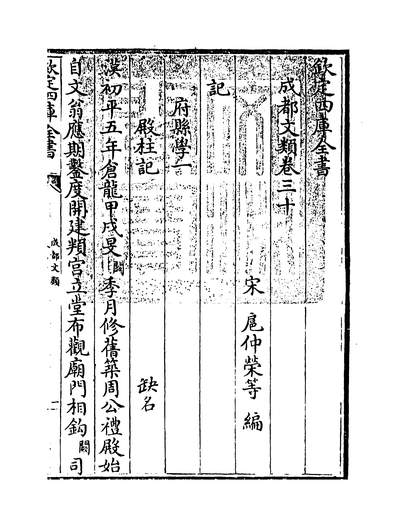 欽定四庫全書
成都文類卷三十
宋 扈仲榮等 編
記
府縣學一
殿柱記 缺名
漢初平五年倉龍甲戌旻闕季月修舊築周公禮殿始
自文翁應期鑿度開建頖宫立堂布觀廟門相鈎闕司
欽定四庫全書
成都文類
一